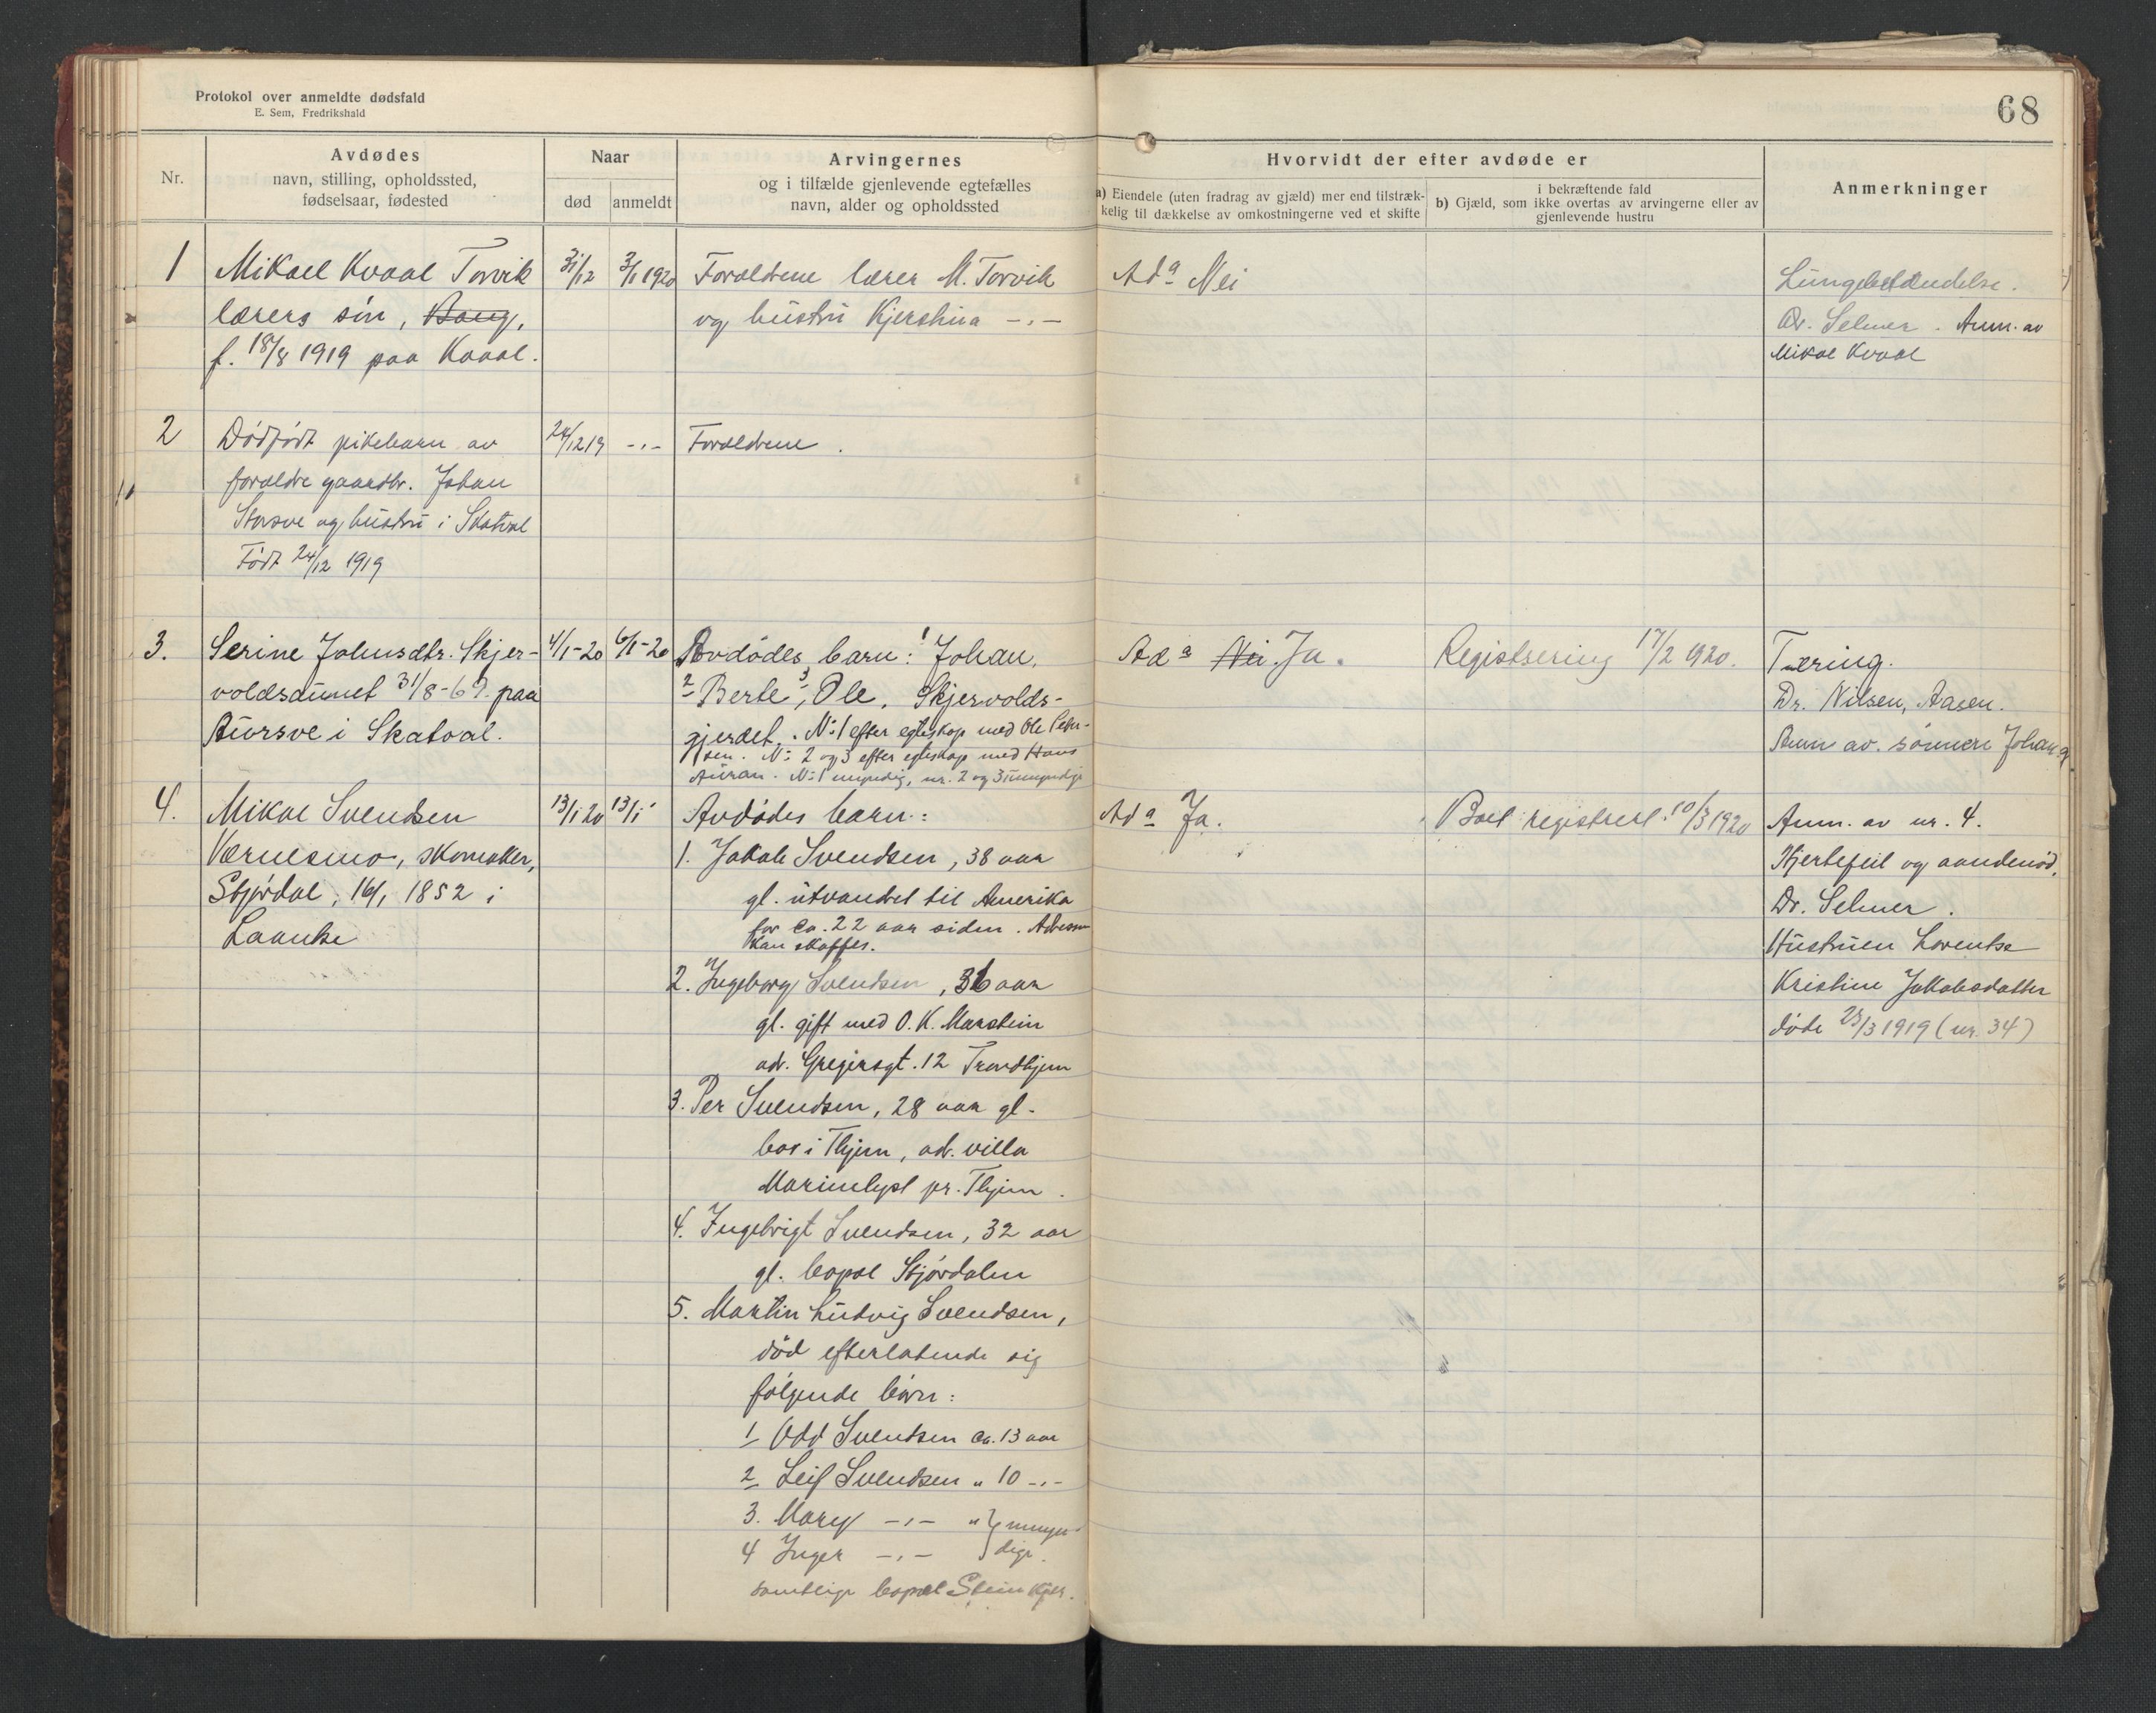 Protokol over anmeldte dødsfald
E. Sem, Fredrikshald
68
Nr.
Avdødes
navn, stilling, opholdssted,
fødselsaar, fødested
Naar
død
anmeldt
Arvingernes
og i tilfælde gjenlevende egtefælles
navn, alder og opholdssted
Hvorvidt der efter avdøde er
a) Eiendele (uten fradrag av gjæld) mer end tilstræk-
kelig til dækkelse av omkostningerne ved et skifte
i bekræftende fald
b) Gjæld, som ikke overtas av arvingerne eller av
gjenlevende hustru
Anmerkninger
1
Mikael Kvaal Torvik
lærers søn,
f. 18/8 1919 paa Kvaal.
31/12
3/1 1920
Forældrene lærer M. Torvik
og hustru Kjerstina -"-
Ad a Nei
Lungebetændelse.
Dr. Selmer. Anm. av
Mikal Kvaal
2
Dødfødt pikebarn av
forældre gaardbr. Johan
Storsve og hustru i Skatval
Født 24/12 1919
24/12 19
-"-
Forældrene.
3.
Serine Johnsdtr. Skjer-
voldsaunet 31/8-69. paa
Aursve i Skatval.
4/1-20
6/1-20
Avdødes barn: 1 Johan,
2 Berte, 3 Ole, Skjervolds-
gjerdet. No 1 efter egteskap med Ole Peder-
sen. No 2 og 3 efter egteskap med Hans
Auran. No 1 myndig, nr. 2 og 3 umyndige
Ad a Nei. Ja.
Registrering 17/2 1920.
Tæring.
Dr. Nilsen, Aasen.
Anm av. sønnen Johan
4.
Mikal Svendsen
Værnesmo, skomaker,
Stjørdal, 16/1 1852 i
Laanke
13/1 20
13/1
Avdødes barn:
1. Jakob Svendsen, 38 aar
gl. utvandret til Amerika
for ca. 22 aar siden. Adressen
kan skaffes.
2. Ingeborg Svendsen, 36 aar
gl. gift med O. K. Marstein
adr. Gregersgt. 12 Trondhjem
3. Per Svendsen, 28 aar gl.
bor i Thjem, adr. villa
Marienlyst pr. Thjem.
4. Ingebrigt Svendsen, 32 aar
gl. bopæl Stjørdalen
5. Martin Ludvig Svendsen,
død efterlatende sig
følgende børn:
1 Odd Svendsen ca. 13 aar
2 Leif Svendsen " 10 -"-
3. Mary -"- " } umyn-
4 Inger -"- dige.
samtlige bopæl Steinkjer.
Ad a Ja.
Boet registrert 10/3 1920
Anm. av nr. 4.
Hjertefeil og aandenød.
Dr. Selmer.
Hustruen Lorentse
Kristine Jakobsdatter
døde 23/3 1919 (nr. 34)